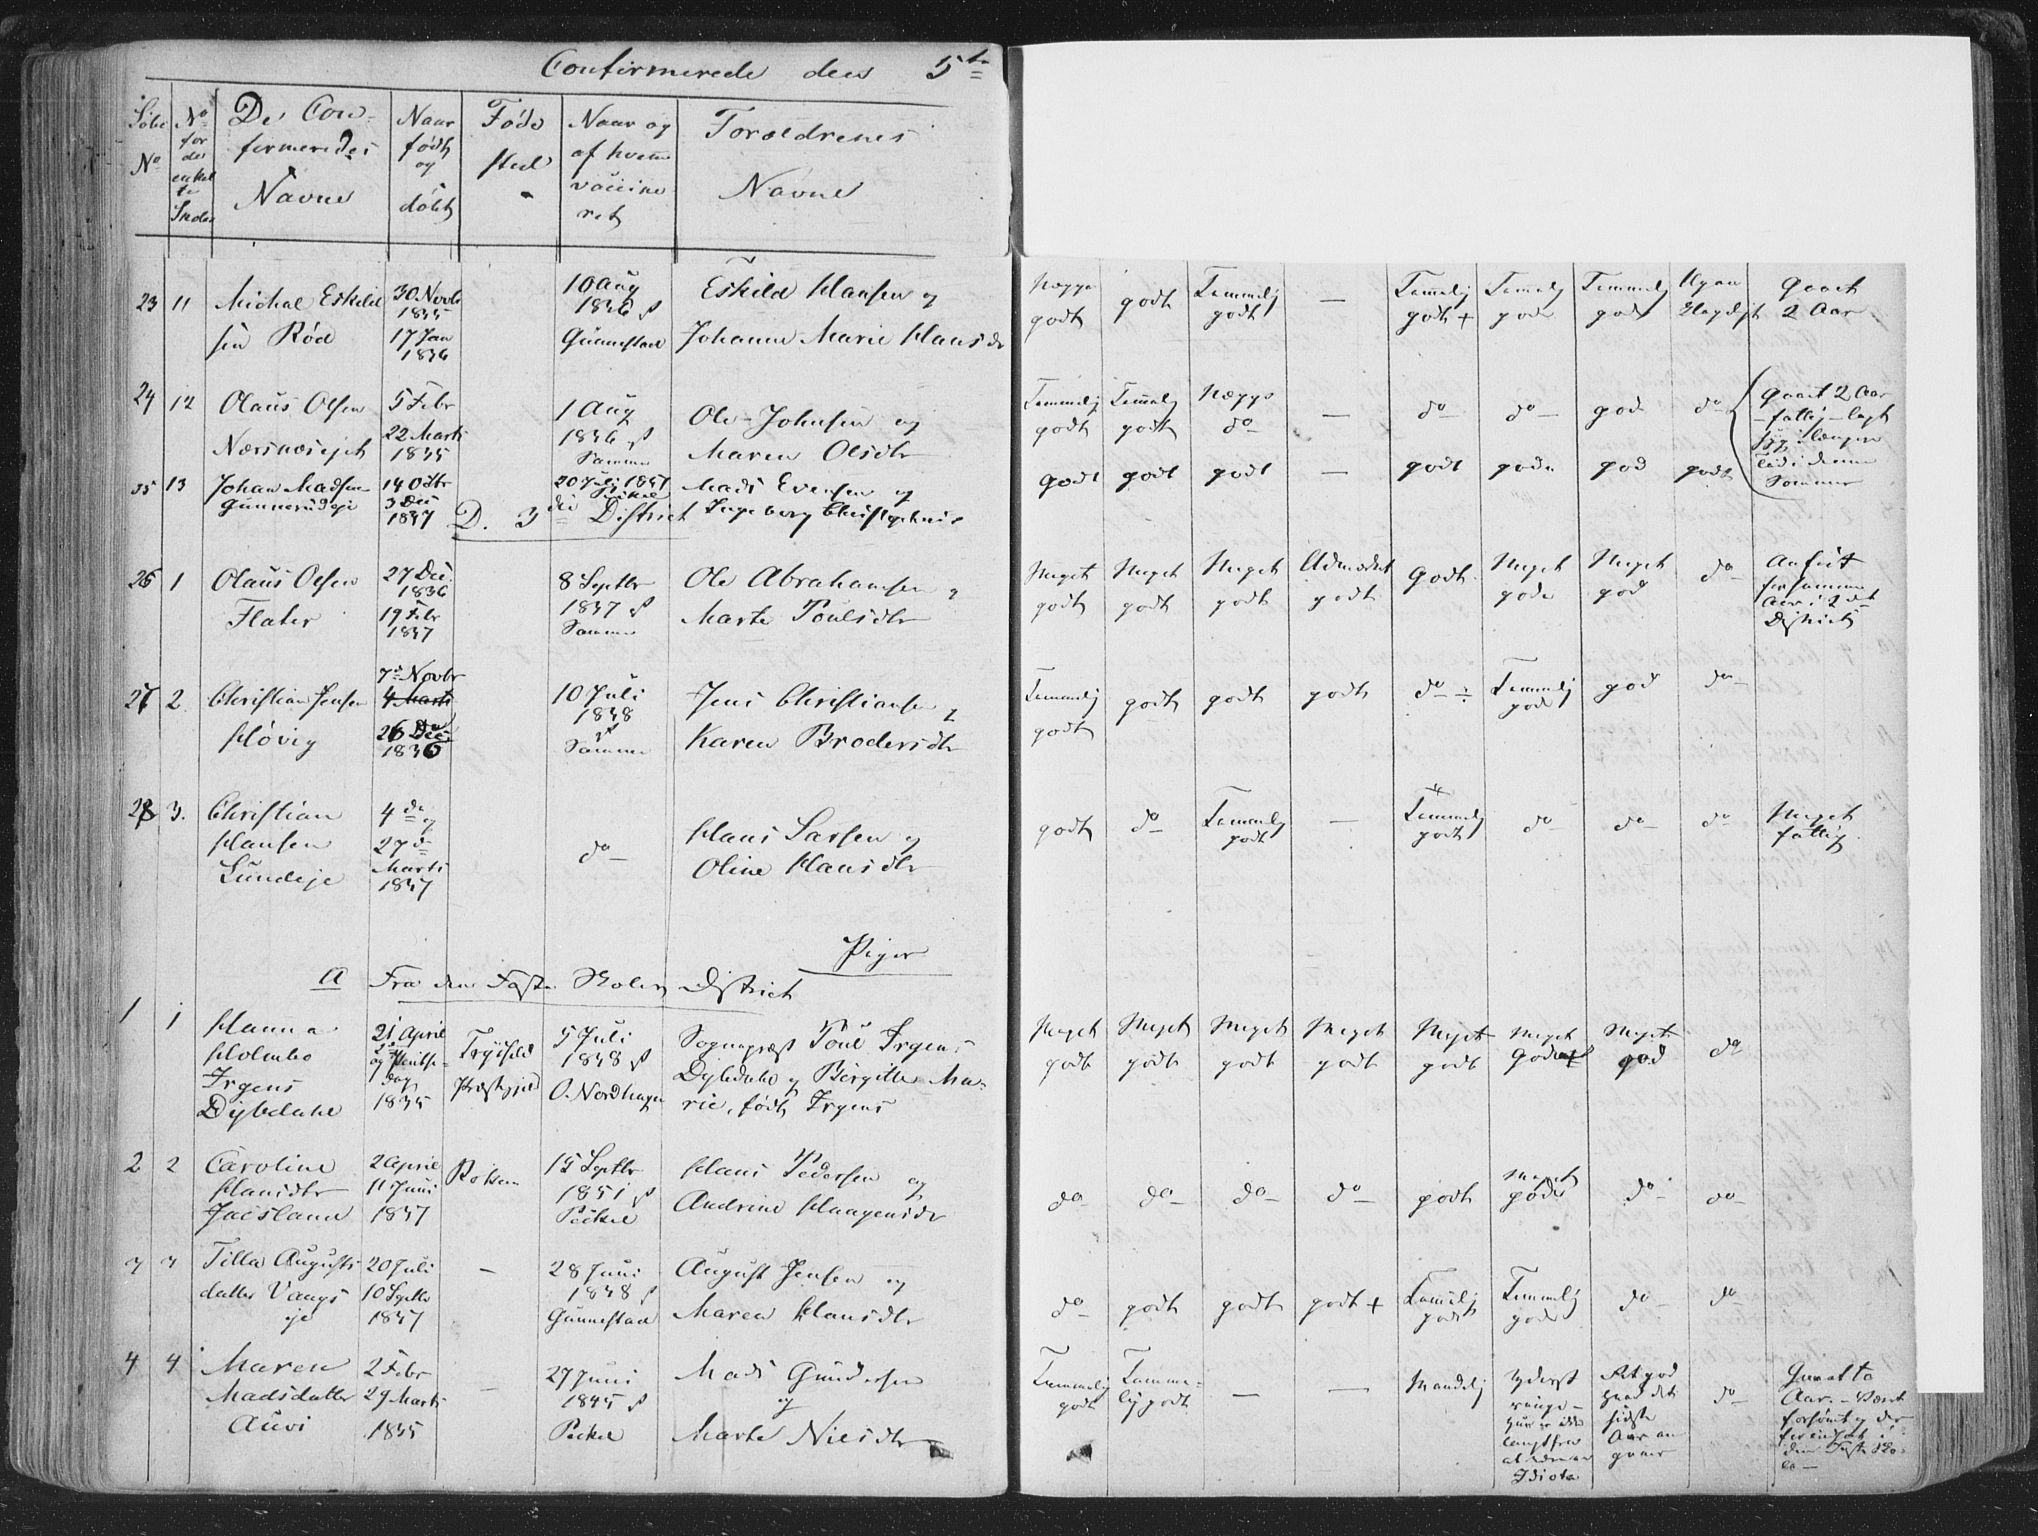 Confirmerede den 5te
Löbe No
No for det enkelte Index
De Confirmeredes Navne
Naar födt og döbt
Föde sted
Naar og af hvem vaccineret
Forældrenes Navne
23 11 Michal Eskild 30 Novbr 1835 10 Aug 1836 Eskild Hansen og
sen Röd 17 Jan 1836 Gunnestad Johanne Marie Hansdr
godt godt Temmelig godt — Temmelig godt + Temmelig god Temmelig god Gaaet 2 Aar
24 12 Olaus Olsen 5 Febr 1 Aug 1836 Ole Johnsen og
Næsnæsejet 22 Marts 1835 Samme Maren Olsdtr
Temmelig godt Temmelig godt do — do do god do Gaaet 2 Aar
fattig
Sommer
25 13 Johan Madsen 14 Octbr 20 Juli 1851 Mads Evensen og
Gunnerudeje 3 Dec 1837 Ingeborg
godt godt godt — godt gode god godt
D. 3die District
26 1 Olaus Olsen 27 Dec 1836 8 Septbr 1837 Ole Abrahamsen og
Flater 19 Febr 1837 Samme Marte Poulsdtr
Meget godt Meget godt Meget godt Udmærket godt Godt Meget gode Meget god do
Aar i 2det District
27 2 Christian Jensen 7de Novbr 4 Marts 10 Juli 1838 Jens Christiansen og
Hövig 26 Dec 1836 Samme Karen Brodersdtr
Temmelig godt godt godt godt do Temmelig gode god do
28 3. Christian 4de og
Hansen 27de do Hans Larsen og
Lundeje Marts 1837 Oline Hansdtr
godt do Temmelig godt — Temmelig godt do do do Meget fattig
Piger
A Fra den Faste Skoles District
1 1 Hanna 21 April 5 Juli 1838 Sognepræst Poul Irgens
Holmbo og Pintse- Trysild Dybdahl og Birgitte Ma-
Irgens dag Præstegjeld O. Nordhagen rie, födt Irgens
Dybdahl 1835
Meget godt Meget godt Meget godt Meget godt Meget godt Meget gode + Meget god do
2 2 Caroline 2 April Röken 15 Septbr Hans Pedersen og
Hansdtr 11 Juni 1851 Andrine Haagensdr
Jaisland 1837 Peckel
do do do do godt Meget gode do do
3 3 Tilla Augusts 20 Juli — 28 Juni August Jensen og
datter Vangs 10 Septbr 1838 Maren Hansdtr
eje 1837 Gunnestad
do godt godt godt + Temmelig godt Temmelig gode do do
4 4 Maren 2 Febr — 27 Juni Mads Gundersen
Madsdatter 29 Marts 1845 og
Auvi 1835 Peckel Marte Nielsdtr
Temmelig godt Temmelig godt — — Maadelig Yderst ringe — Hun er ikke langt fra at være en Idiot
Ret god hvad det sidste Aar angaaer
do
Gaaet to Aar. —
den Faste Skole —